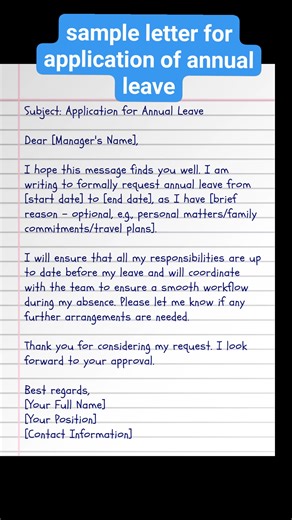 sample letter for
application of annual
leave
Subject: Application for Annual Leave
Dear [Manager's Name],
I hope this message finds you well. I am
writing to formally request annual leave from
[start date] to [end date], as I have [brief
reason – optional, e.g., personal matters/family
commitments/travel plans].
I will ensure that all my responsibilities are up
to date before my leave and will coordinate
with the team to ensure a smooth workflow
during my absence. Please let me know if any
further arrangements are needed.
Thank you for considering my request. I look
forward to your approval.
Best regards,
[Your Full Name]
[Your Position]
[Contact Information]